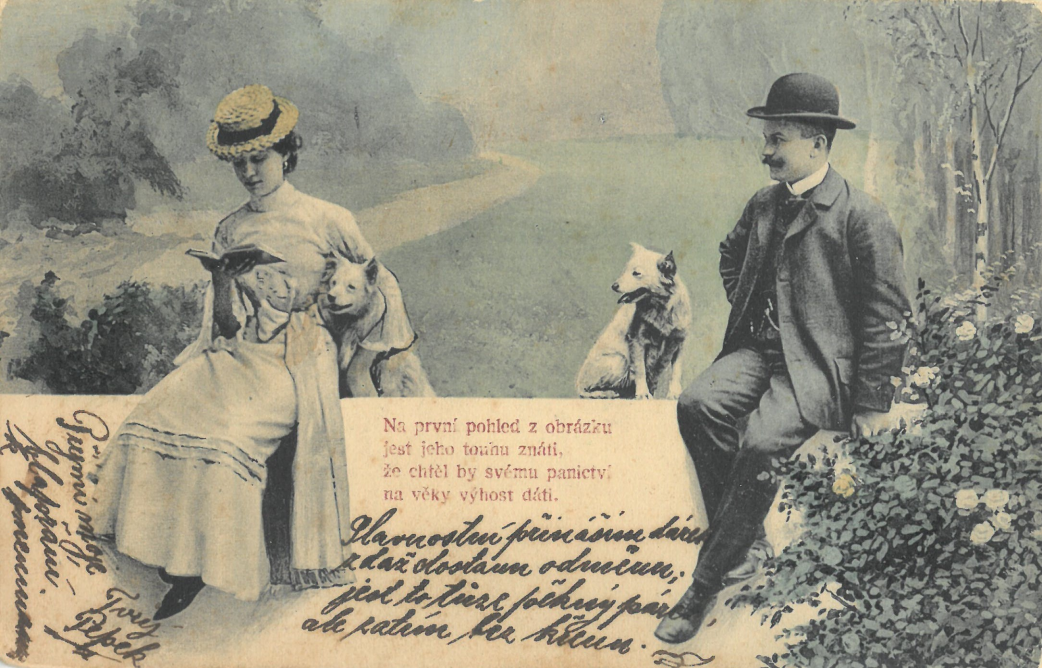 Na první pohled z obrázku
jest jeho touhu znáti,
že chtěl by svému panictví
na věky výhost dáti.
Slavnostní přináším dárek
zdaž dostanu odměnu,
jest to tuze pěkný pár
ale zatím bez
Přijmi moje
Tvůj
Pepek